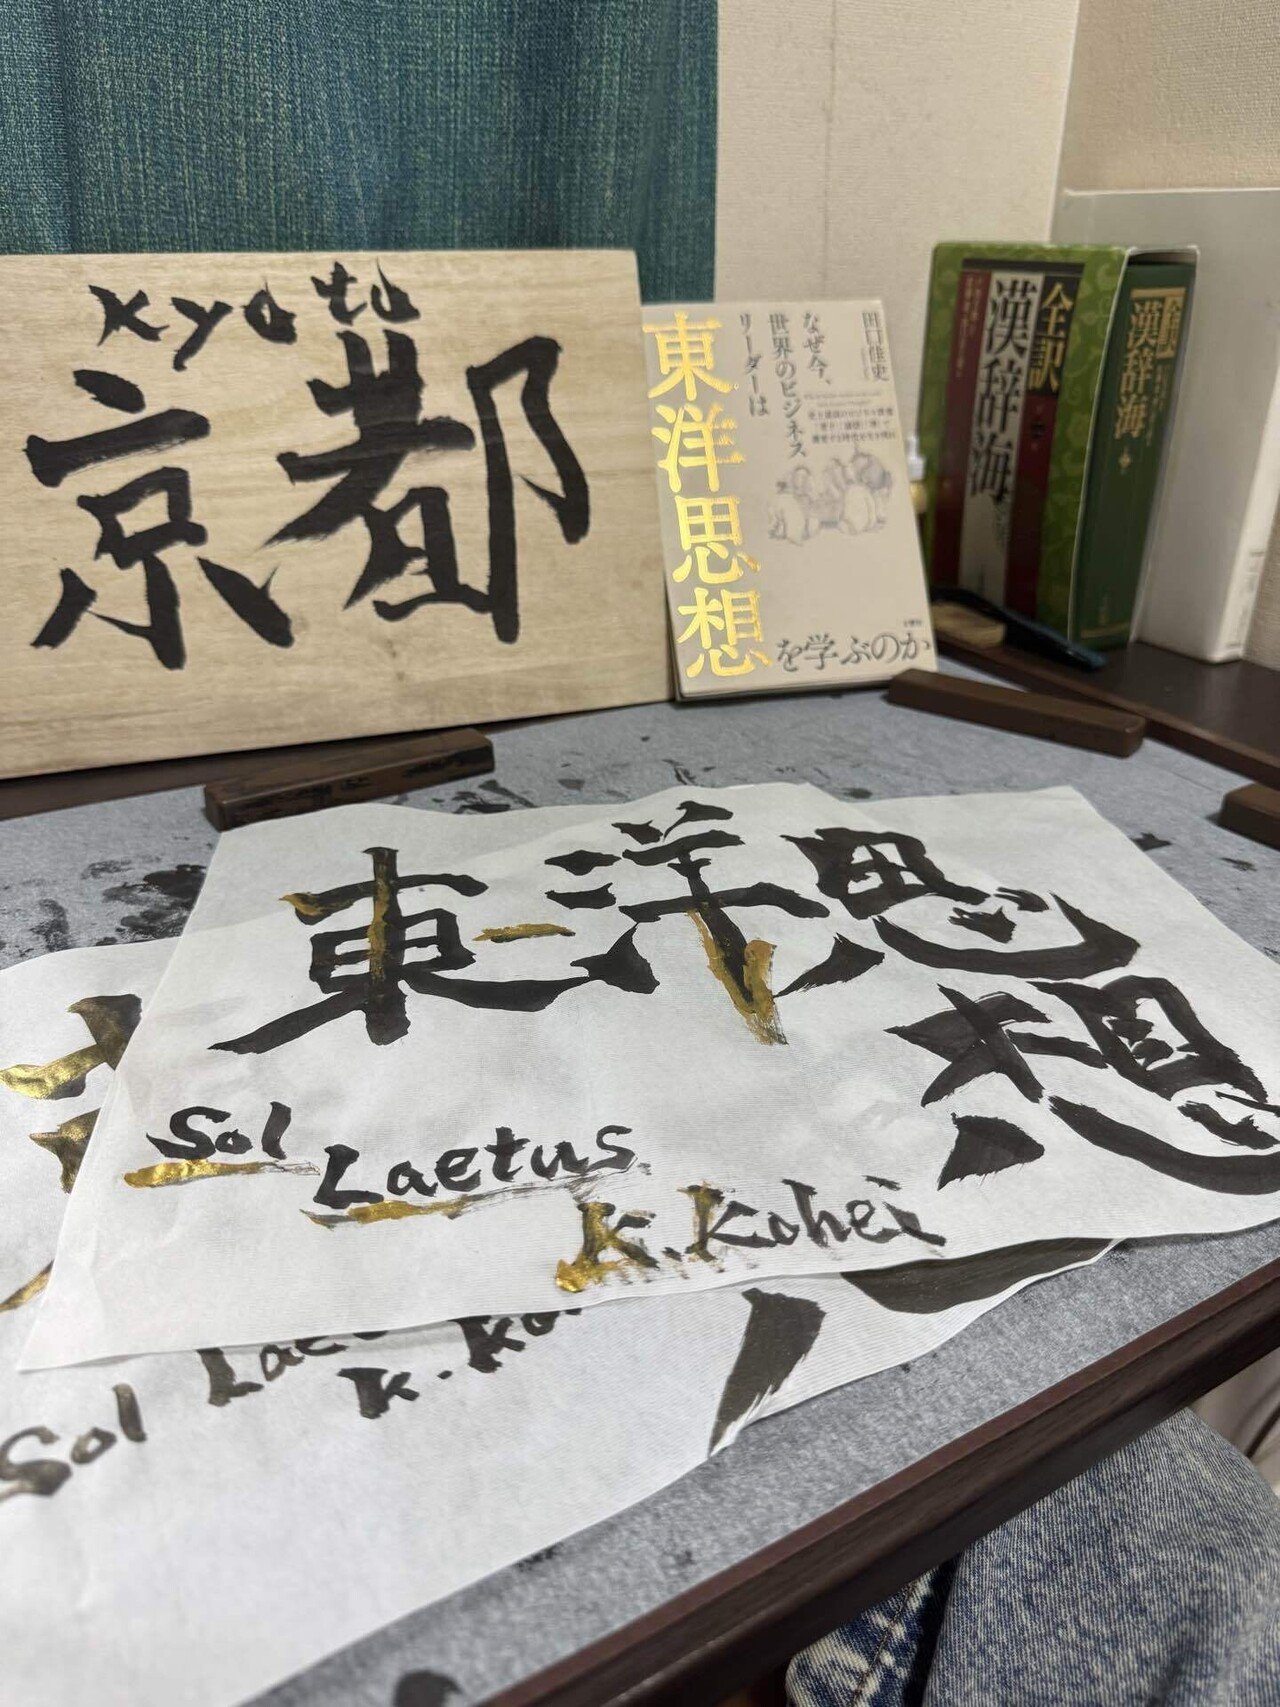 kyoto
京都
田口佳史
なぜ今、
世界のビジネス
リーダーは
東洋思想
を学ぶのか
全訳
漢辞海
漢辞海
東洋思想
Sol
Laetus
K.Kohei
Sol
K.